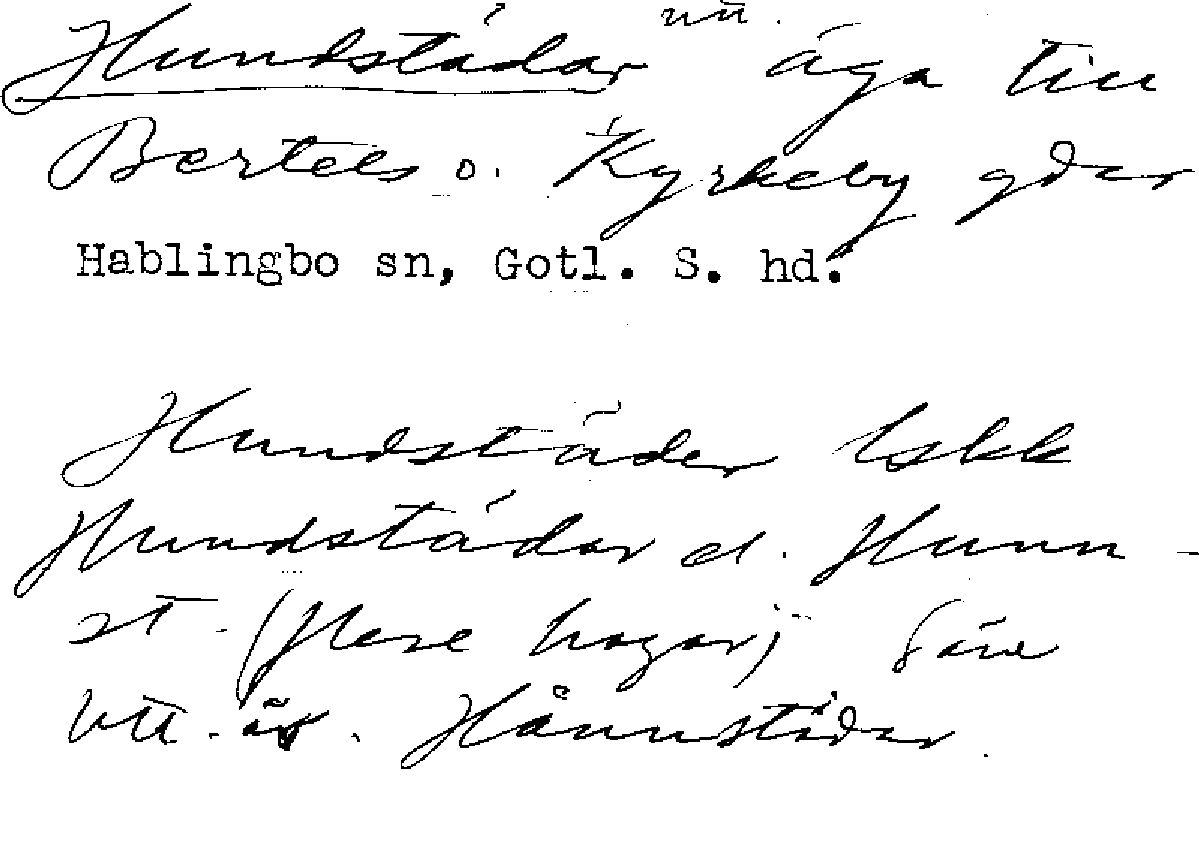 Hundstádar äga till
Bertels o. Kyrkeby gdar
Hablingbo sn, Gotl. S. hd.
Hundstäder lskk
Hundstádar el. Hunn-
st. (flere hagar)
utt. är. Hånnstädar.